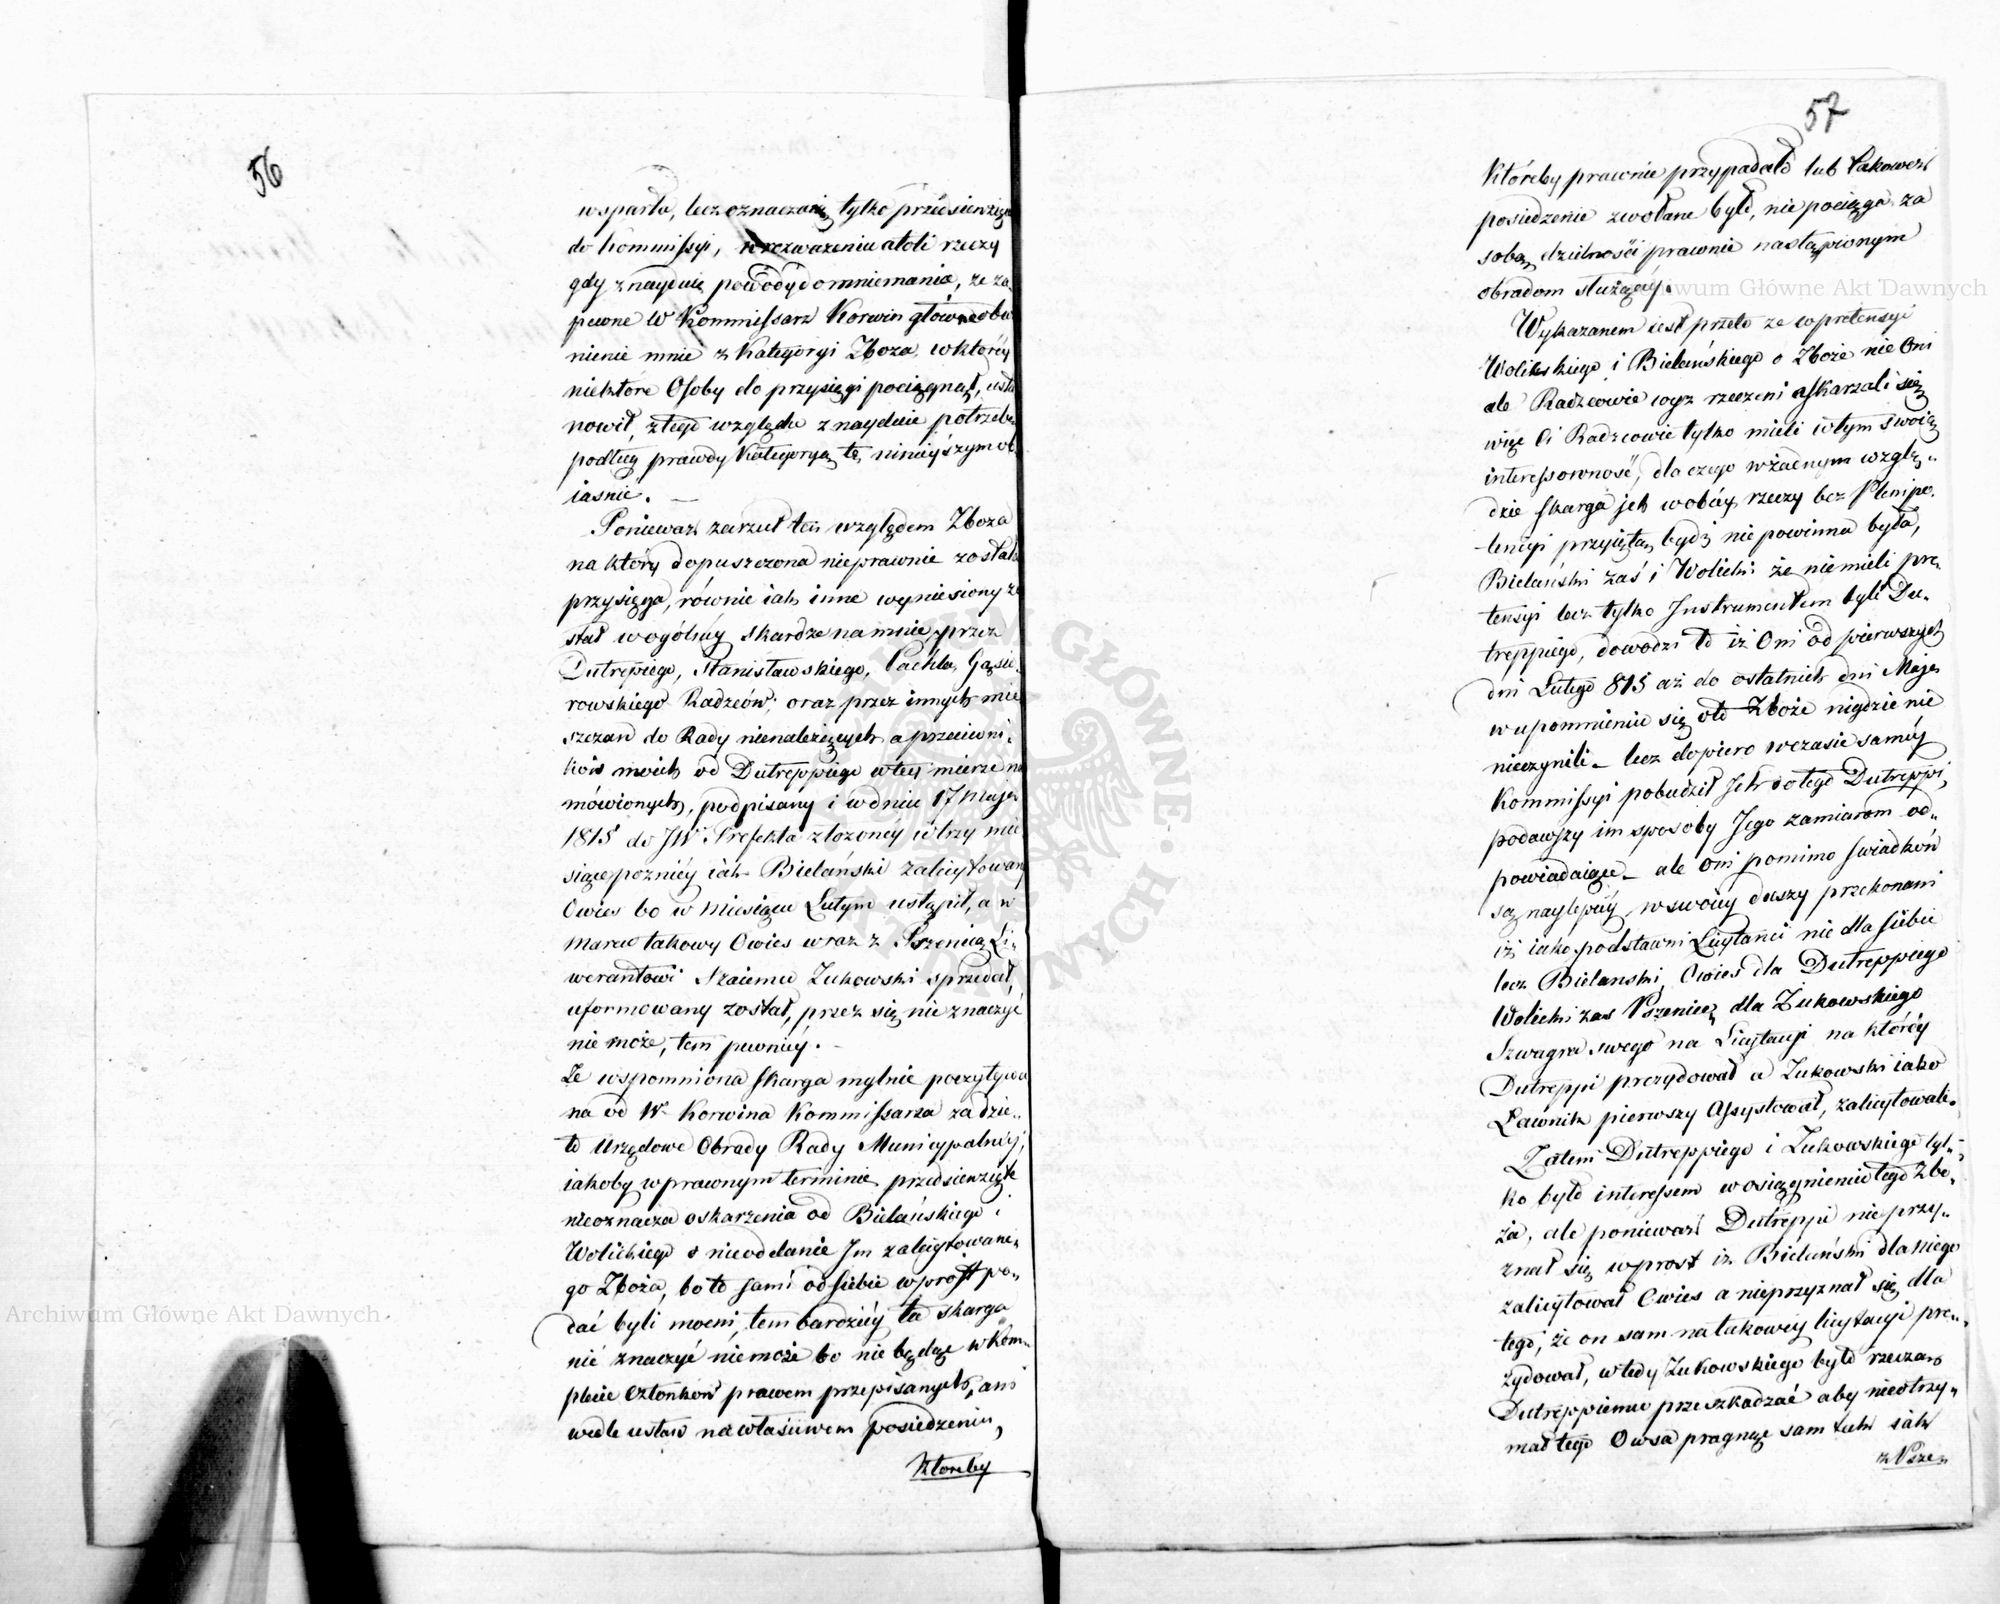 56
wsparta, lecz oznaczanię tylko przedsięwzięcia
do Kommissyi, w rozważeniu atoli rzeczy
gdy znayduię powody domniemania, że za
pewne W Kommissarz Korwin główne obwi
nienie mnie z Kategoryi Zboża, w którey
niektóre Osoby do przysięgi pociągnął, usta
nowił, z tego względu znayduie potrzebę
podług prawdy Kategoryą tę ninieyszym ob
iasnić. —
Ponieważ zarzut ten względem Zboża
na który dopuszczona nieprawnie została
przysięga, równie iak inne wyniesiony zo
stał w ogólney skardze na mnie przez
Dutrepiego, Stanisławskiego, Pachla, Gąsie,
rowskiego Radzców, oraz przez innych mie
szczan do Rady nienależących a przeciwni,
ków moich od Dutreppiego w tey mierze na
mówionych, podpisany i w dniu 17 Maja
1815 do JW Prefekta złożoney w trzy mie
siące pozniey iak Bielański zalicytowany
Owies bo w Miesiącu Lutym ustąpił, a w
Marcu takowy Owies wraz z Pszenicą Li,
werantowi Szaiemu Zukowski sprzedał,
uformowany został, przez się nic znaczyć
nie może, tem pewniey. —
Ze wspomniona skarga mylnie poczytywa
na od W Korwina Kommissarza za dzie,,
ło Urzędowe Obrady Rady Municypalney,
iakoby w prawnym terminie przedsiewzięte
nieoznacza oskarżenia od Bielańskiego i
Wolickiego o nieoddanie Im zalicytowane,,
go Zboża, bo to sami od siebie wprost po,,
dać byli mocni, tem bardziey ta skarga
nic znaczyć niemoże bo nie będąc w Kom,,
plecie członków prawem przepisanych, ani
wedle ustaw na właściwem posiedzeniu,
Któreby
57
Któreby prawnie przypadało lub takowe
posiedzenie zwołane było, nie pociąga za
sobą dzielności prawnie nastąpionym
obradom służącey.
Wykazanem iest przeto ze w pretensyi
Wolickiego i Bielańskiego o Zboże nie Oni
ale Radzcowie wyz rzeczeni askarzali się
więc Ci Radzcowie tylko mieli w tym swoią
interessowność, dla czego w żadnym wzglę,,
dzie skarga ich w obcey rzeczy bez Plenipo,
tencyi przyiętą bydź nie powinna była,
Bielański zaś i Wolicki że niemieli pre,
tensyi lecz tylko Instrumentem byli Du,,
treppiego, dowodzi to iż Oni od pierwszych
dni Lutego 815 aż do ostatnich dni Maja
w upomnieniu się oto Zboże nigdzie nie
nieczynili — lecz dopiero w czasie samey
Kommissyi pobudził Ich do tego Dutreppi,
podawszy im sposoby Jego zamiarom od,,
powiadaiące — ale oni pomimo swiadków
są naylepiey w swoiey duszy przekonani
iż iako podstawni Licytanci nie dla siebie
lecz Bielanski, Owies dla Dutreppiego
Wolicki zas Pszenicę dla Zukowskiego
Szwagra swego na Licytacyi na którey
Dutreppi prezydował a Zukowski iako
Ławnik pierwszy Assystował, zalicytowali.
Zatem Dutreppiego i Zukowskiego tyl,,
ko było interessem w osiągnieniu tego Zbo,
ża, ale ponieważ Dutreppi nie przy,,
znał się wprost iż Bielański dla niego
zalicytował Owies a nieprzyznał się dla
tego, że on sam na takowey licytacyi pre,,
zydował, wtedy Zukowskiego było rzeczą
Dutreppiemu przeszkadzać aby nieotrzy,,
mał tego Owsa pragnąc sam tak iak
z Psze,,
Archiwum Główne Akt Dawnych
Archiwum Główne Akt Dawnych